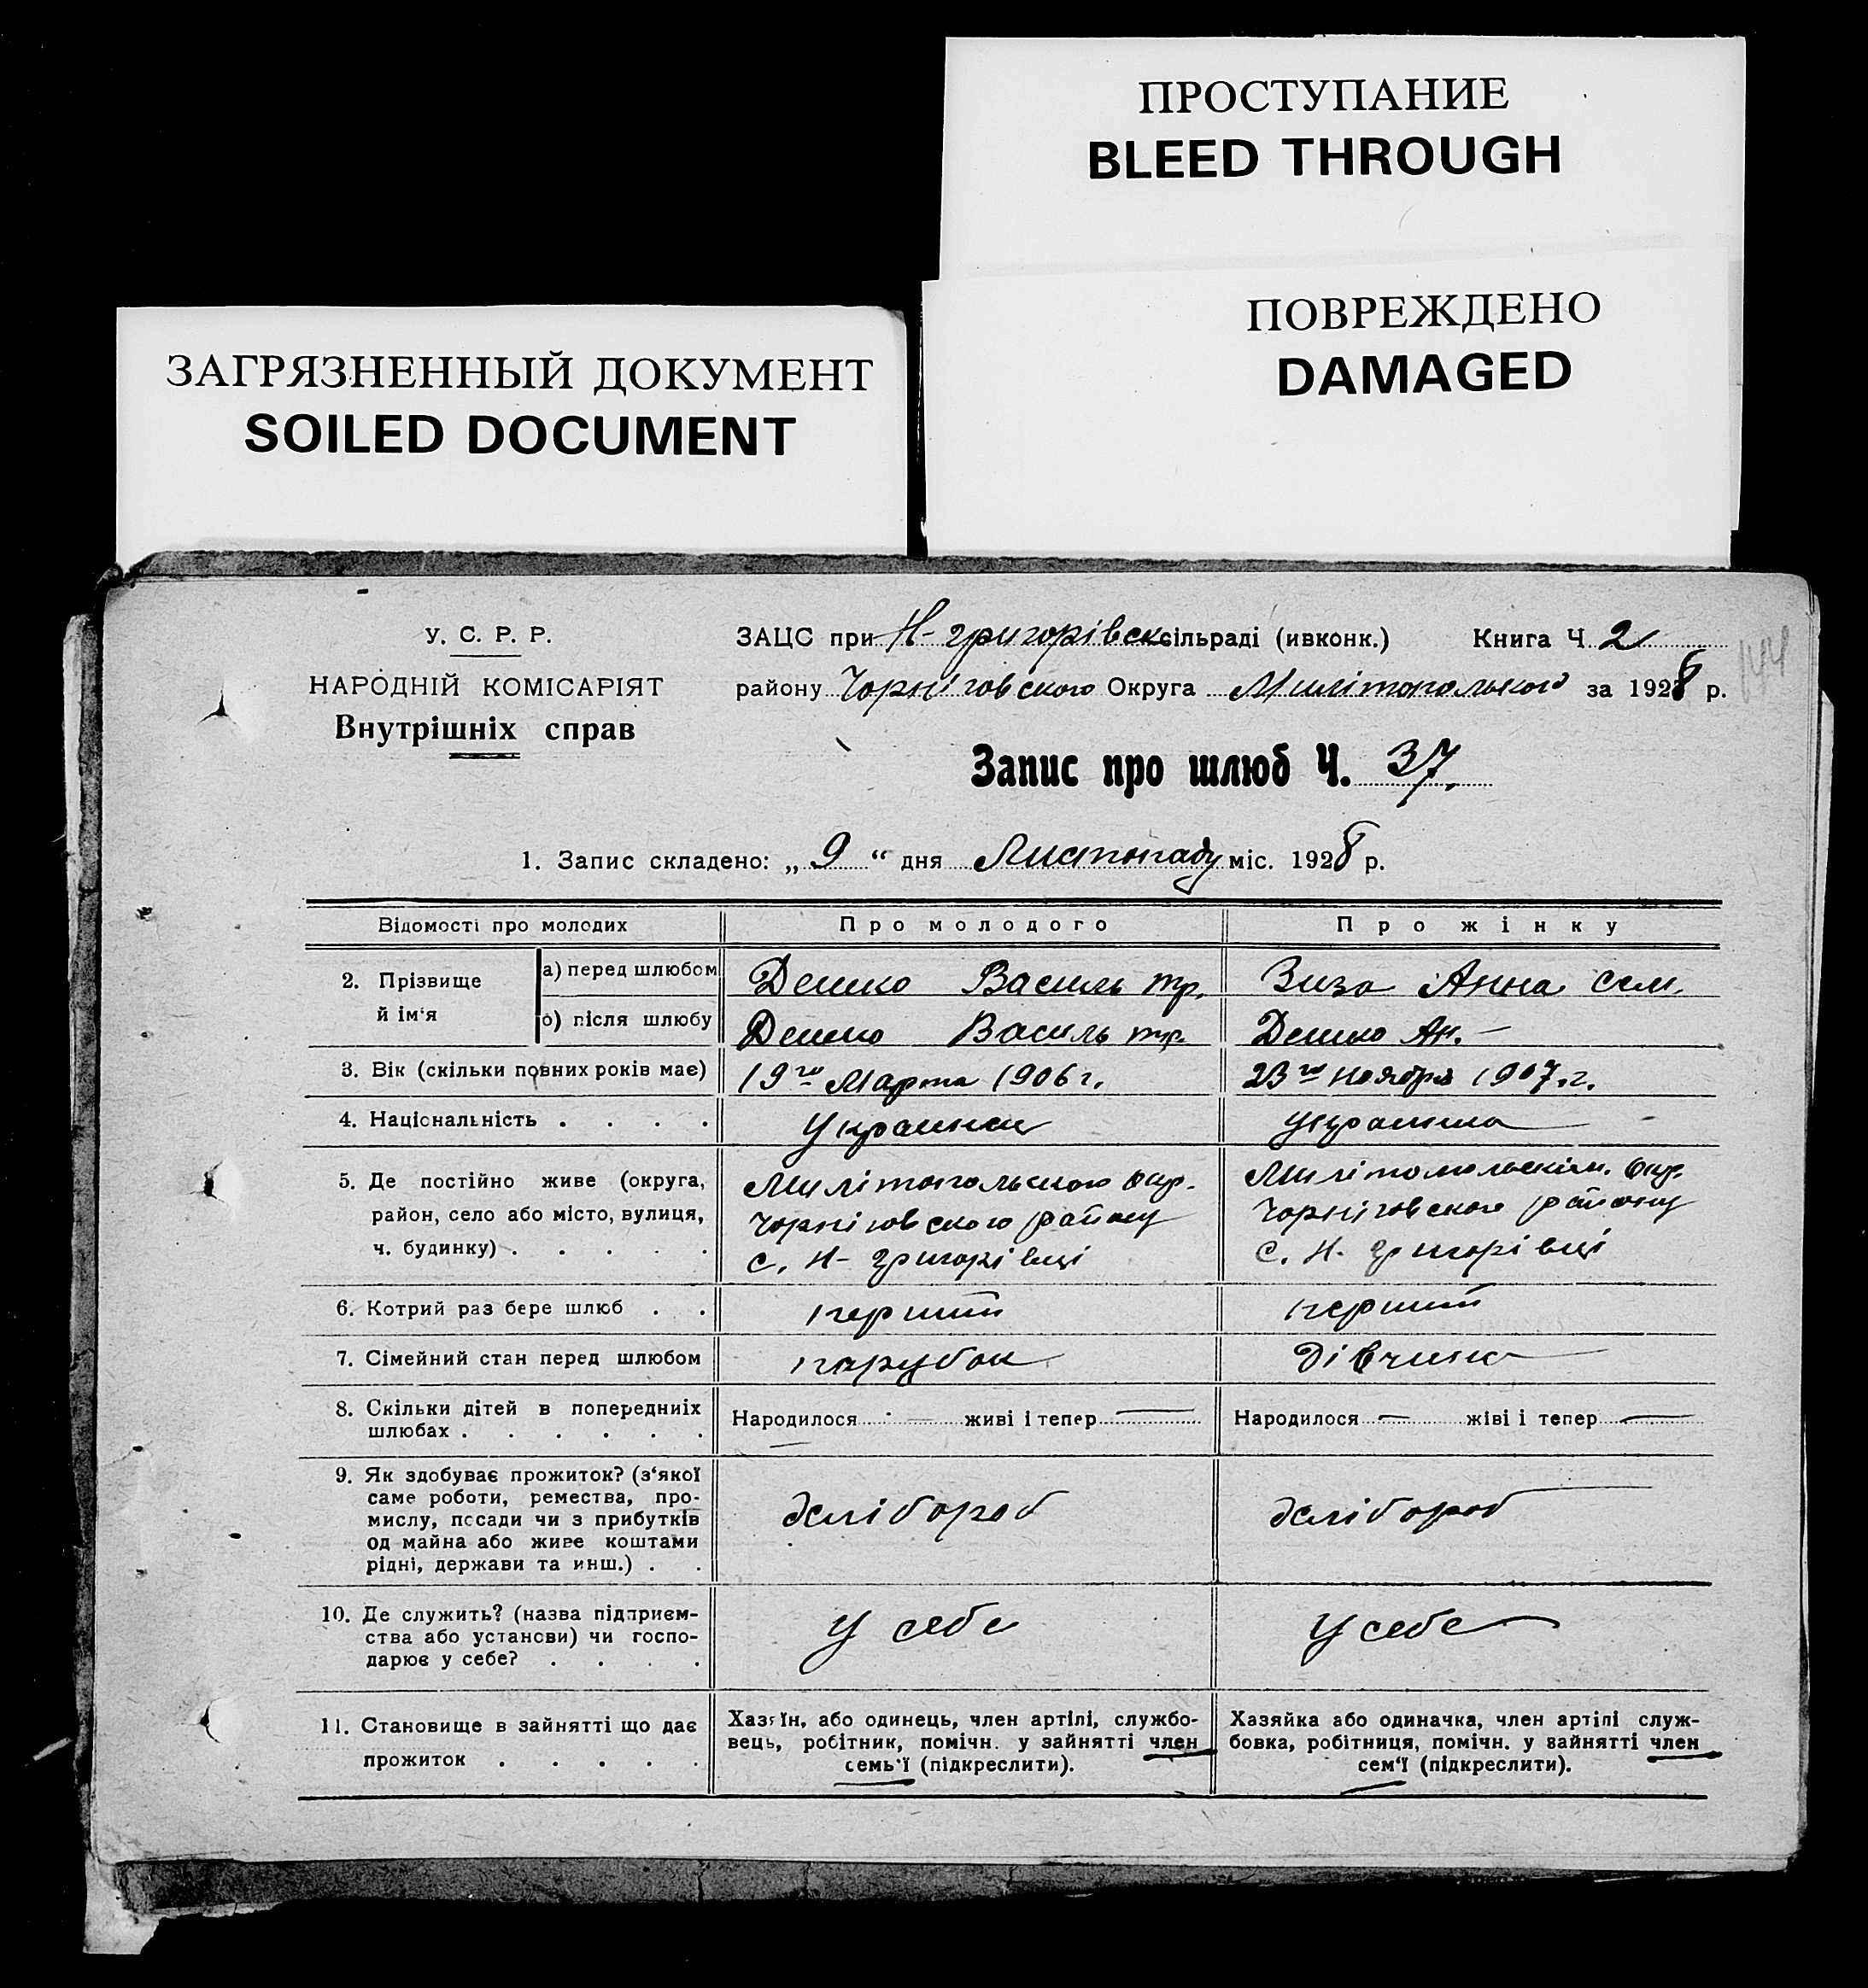 ПРОСТУПАНИЕ
BLEED THROUGH
ПОВРЕЖДЕНО
DAMAGED
ЗАГРЯЗНЕННЫЙ ДОКУМЕНТ
SOILED DOCUMENT
У. С. Р. Р.
НАРОДНІЙ КОМІСАРІЯТ
Внутрішніх справ
ЗАЦС при Н-Григорівск. сільраді (ивконк.) Книга Ч. 2
району Чорніговского Округа Милітопольского за 1928 р.
144
Запис про шлюб Ч. 37.
1. Запис складено: „ 9 “ дня Листопаду міс. 1928 р.
Відомості про молодих Про молодого Про жінку
2. Прізвище й ім‘я
а) перед шлюбом Дешко Василь тр. Зиза Анна сем.
б) після шлюбу Дешко Василь тр. Дешко Ан. —
3. Вік (скільки повних років має) 19го Марта 1906 г. 23го ноября 1907. г.
4. Національність . . . . Украинец Украинка
5. Де постійно живе (округа, Милітопольского окр. Милітопольскім. Окр.
район, село або місто, вулиця, Чорніговского району Чорніговского району
ч. будинку) . . . . . с. Н- Григорівці с. Н- Григорівці
6. Котрий раз бере шлюб . . перший перший
7. Сімейний стан перед шлюбом парубок дівчина
8. Скільки дітей в попередниіх Народилося — живі і тепер — Народилося — жіві і тепер —
шлюбах . . . . . .
9. Як здобуває прожиток? (з‘якої
саме роботи, ремества, про-
мислу, посади чи з прибутків хлібороб хлібороб
од майна або живе коштами
рідні, держави та инш.) . .
10. Де служить? (назва підприєм-
ства або установи) чи госпо- У себе У себе
дарює у себе? . . . .
11. Становище в зайнятті що дає Хазяїн, або одинець, член артілі, службо- Хазяйка або одиначка, член артілі служ-
прожиток . . . . . вець, робітник, помічн. у зайнятті член бовка, робітниця, помічн. у зайнятті член
семь‘ї (підкреслити). сем‘ї (підкреслити).